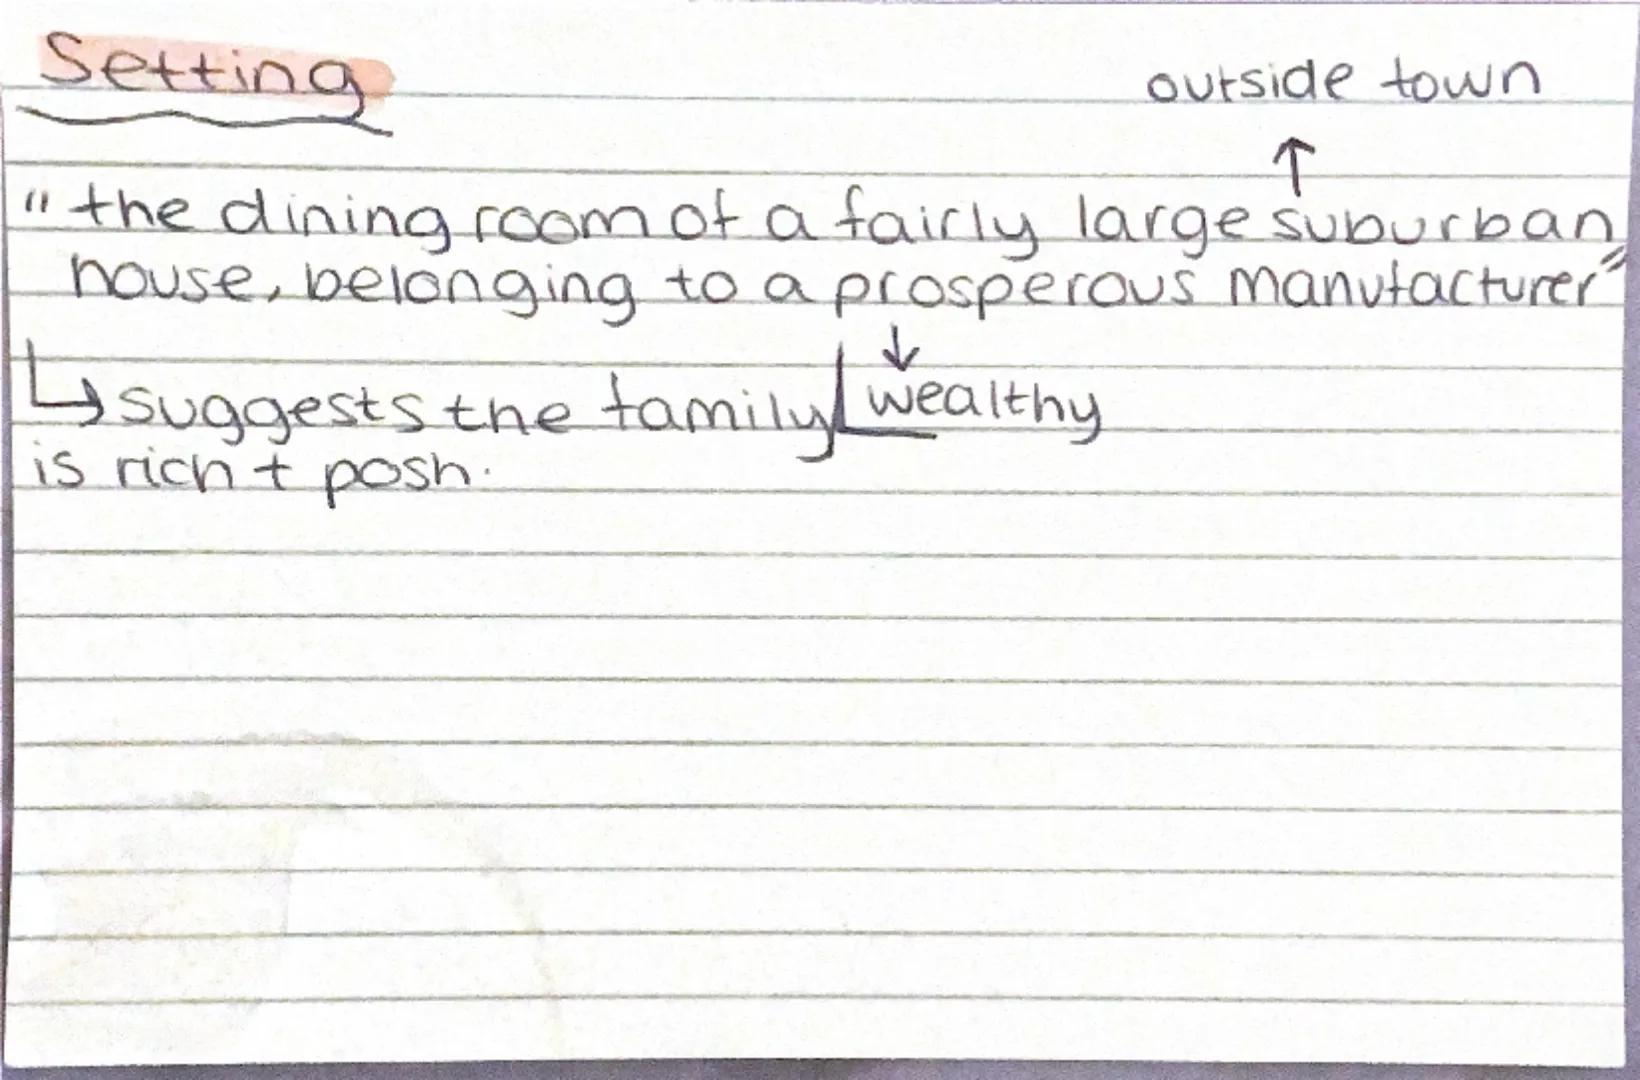 Setting
outside town
↑
"the dining room of a fairly large suburban
house, belonging to a prosperous manufacturer"
↓
↳ suggests the family wealthy
is rich + posh.